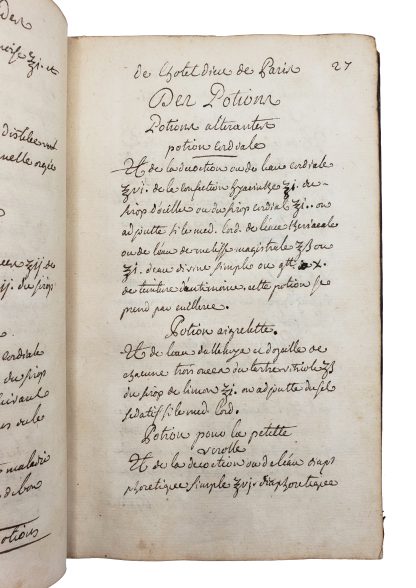 de lhotel dieu de Paris 27
Des Potions
Potions alterantes
potion cordiale
♃ de la decoction ou de leau cordiale
ʒvi. de la confection hyacinthe ʒi. du
sirop d'œillet ou du sirop cordial ʒi.. on
adjoutte si le med. lord. de leau theriacale
ou de leau de melisse magistrale ʒß ou
ʒi. deau divine simple ou gtt x.
de teinture dantimoine, cette potion se
prend par cuilleree.
Potion aigrelette.
♃ de leau dalleluya et dozeille de
chacune trois onces du tartre vitriolé ʒß
du sirop de limon ʒi. on adjoutte du sel
sedatif si le med lord.
Potion pour la petitte
verolle
♃ de la decoction ou de leau diaph
phoretique simple ʒvj. diaphoretique
distilée
cordiale
du sirop
suivant
maladie
de bon
otions